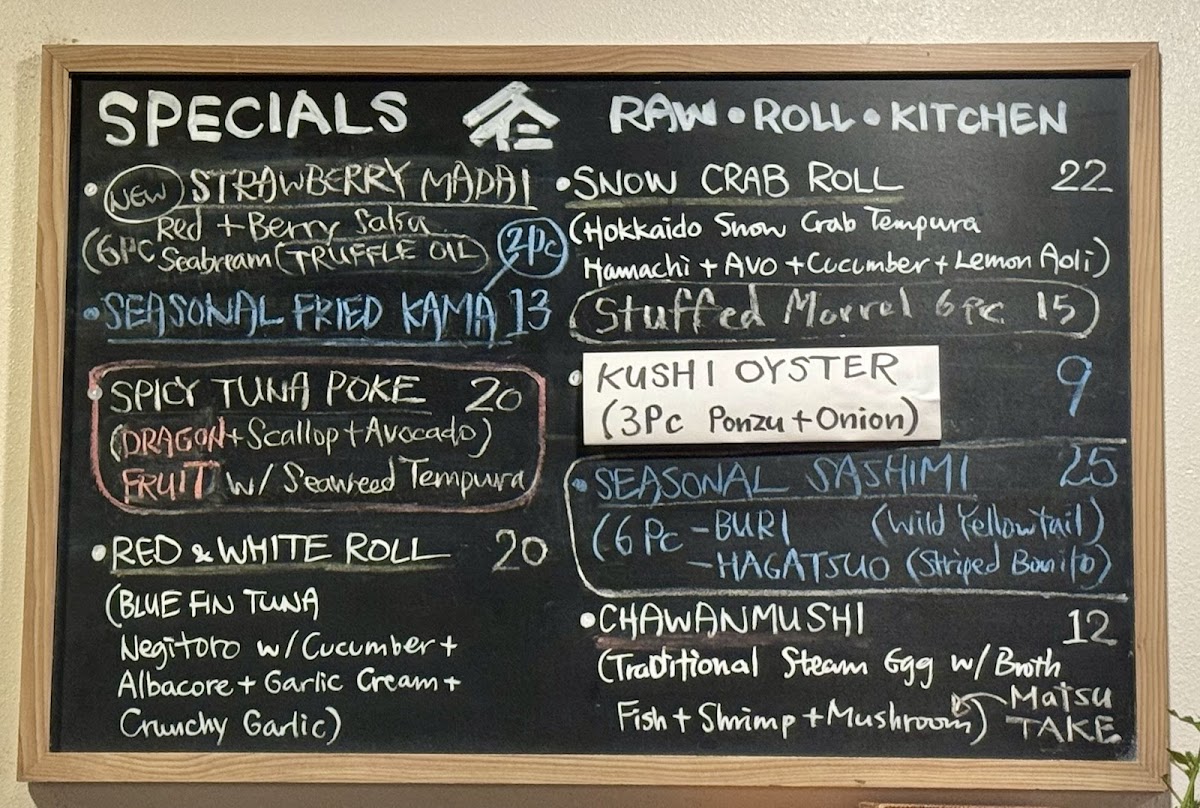 SPECIALS
RAW • ROLL • KITCHEN
• NEW STRAWBERRY MADAI
Red + Berry Salsa
(6PC Seabream (TRUFFLE OIL) 2Pc
• SEASONAL FRIED KAMA 13
• SPICY TUNA POKE 20
(DRAGON + Scallop + Avocado)
FRUIT w/ Seaweed Tempura
• RED & WHITE ROLL 20
(BLUE FIN TUNA
Negitoro w/ Cucumber +
Albacore + Garlic Cream +
Crunchy Garlic)
• SNOW CRAB ROLL 22
(Hokkaido Snow Crab Tempura
Hamachi + AVO + Cucumber + Lemon Aoli)
Stuffed Morrel 6 pc 15
• KUSHI OYSTER 9
(3Pc Ponzu + Onion)
• SEASONAL SASHIMI 25
(6 Pc - BURI (Wild Yellowtail)
- HAGATSUO (Striped Bonito)
• CHAWANMUSHI 12
(Traditional Steam Egg w/ Broth
Fish + Shrimp + Mushroom) Matsu
TAKE